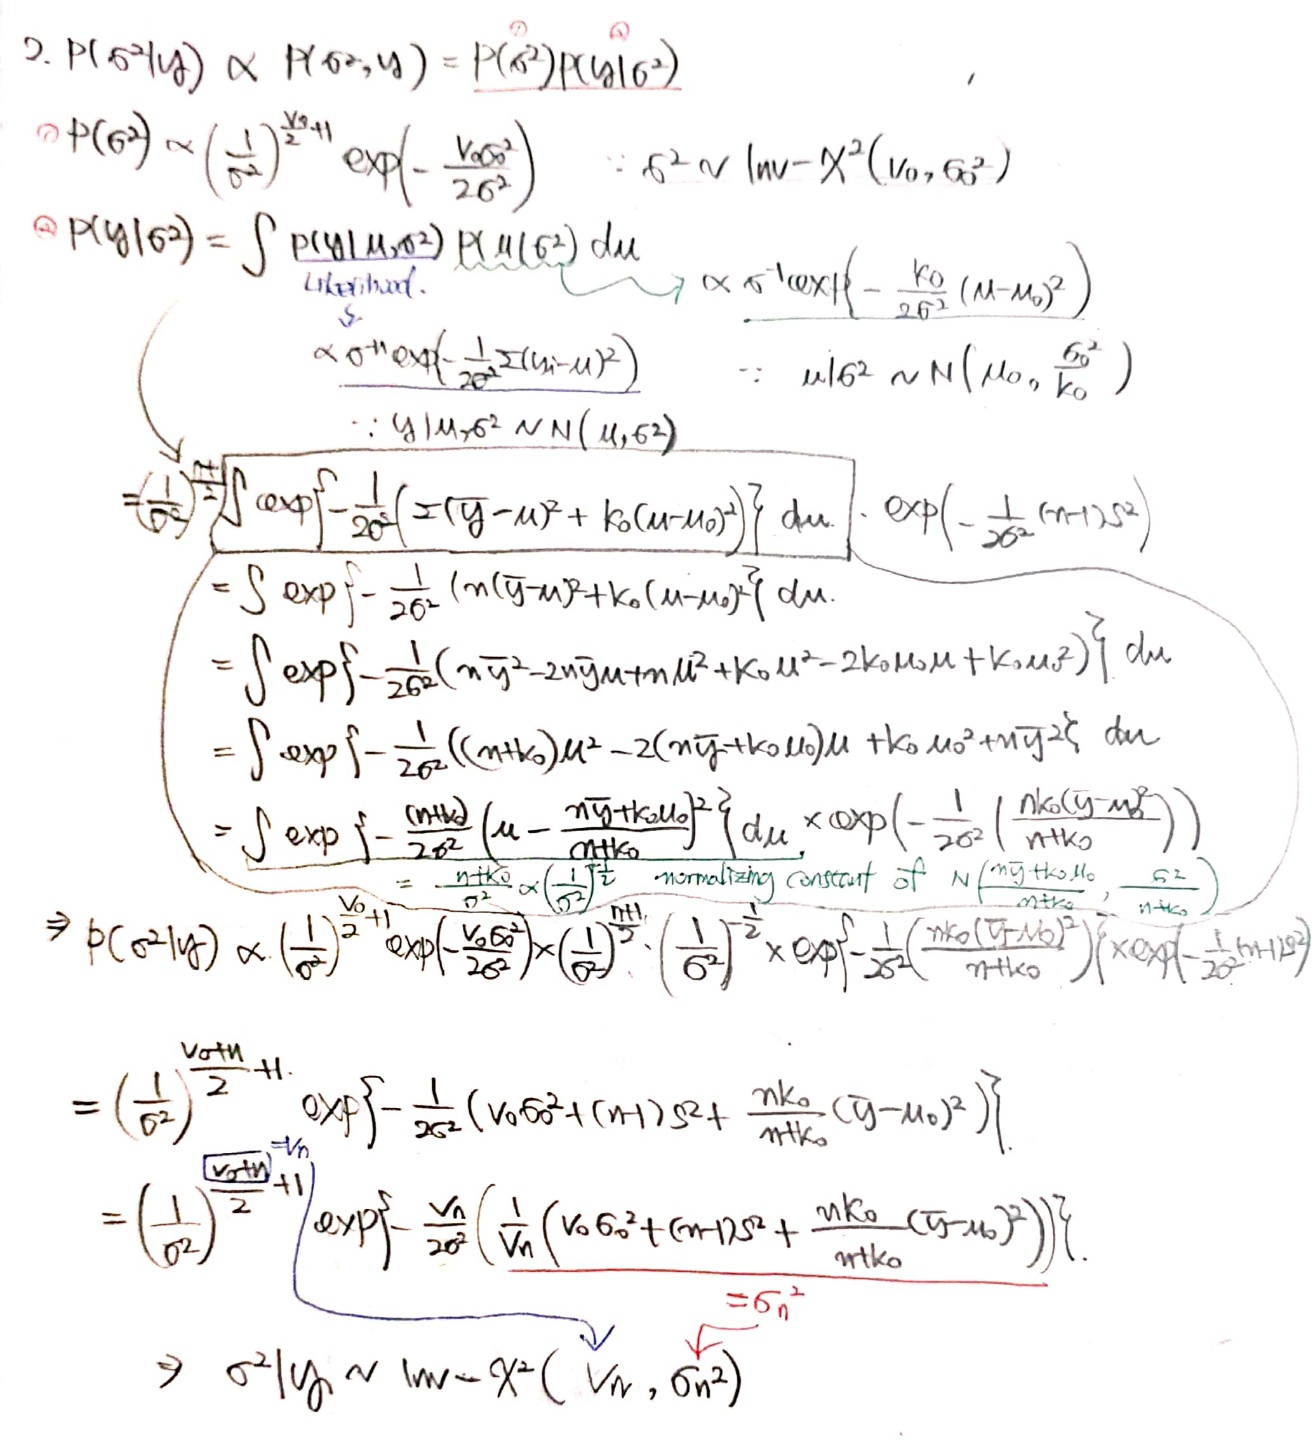 ① ②
2. P(σ²|y) ∝ P(σ², y) = P(σ²)P(y|σ²)
① P(σ²) ∝ (1/σ²)^(ν₀/2+1) exp(-ν₀σ₀²/2σ²) ∵ σ² ~ Inv-χ²(ν₀, σ₀²)
② P(y|σ²) = ∫ P(y|μ,σ²) P(μ|σ²) dμ
Likelihood. → ∝ σ⁻¹ exp(-k₀/2σ² (μ-μ₀)²)
∝ σ⁻ⁿ exp(-1/2σ² Σ(yᵢ-μ)²) ∵ μ|σ² ~ N(μ₀, σ₀²/k₀)
∵ y|μ,σ² ~ N(μ,σ²)
= (1/σ²)^((n+1)/2) ∫ exp{-1/2σ² (Σ(ȳ-μ)² + k₀(μ-μ₀)²)} dμ · exp(-1/2σ² (n-1)s²)
= ∫ exp{-1/2σ² (n(ȳ-μ)²+k₀(μ-μ₀)²} dμ.
= ∫ exp{-1/2σ² (nȳ²-2nȳμ+nμ²+k₀μ²-2k₀μ₀μ+k₀μ₀²)} dμ
= ∫ exp{-1/2σ² ((n+k₀)μ² -2(nȳ+k₀μ₀)μ +k₀μ₀²+nȳ²} dμ
= ∫ exp{-(n+k₀)/2σ² (μ - (nȳ+k₀μ₀)/(n+k₀))²} dμ × exp(-1/2σ² (nk₀(ȳ-μ₀)²/(n+k₀)))
= (n+k₀)/σ² ∝ (1/σ²)^(-1/2) normalizing constant of N((nȳ+k₀μ₀)/(n+k₀), σ²/(n+k₀))
⇒ P(σ²|y) ∝ (1/σ²)^(ν₀/2+1) exp(-ν₀σ₀²/2σ²) × (1/σ²)^((n+1)/2) · (1/σ²)^(-1/2) × exp{-1/2σ² (nk₀(ȳ-μ₀)²/(n+k₀))} × exp(-1/2σ² (n-1)s²)
= (1/σ²)^((ν₀+n)/2+1) exp{-1/2σ² (ν₀σ₀²+(n-1)s²+ nk₀/(n+k₀) (ȳ-μ₀)²)}
=νₙ
= (1/σ²)^((ν₀+n)/2+1) exp{-νₙ/2σ² (1/νₙ (ν₀σ₀²+(n-1)s²+ nk₀/(n+k₀) (ȳ-μ₀)²))}.
=σₙ²
⇒ σ²|y ~ Inv-χ²(νₙ, σₙ²)